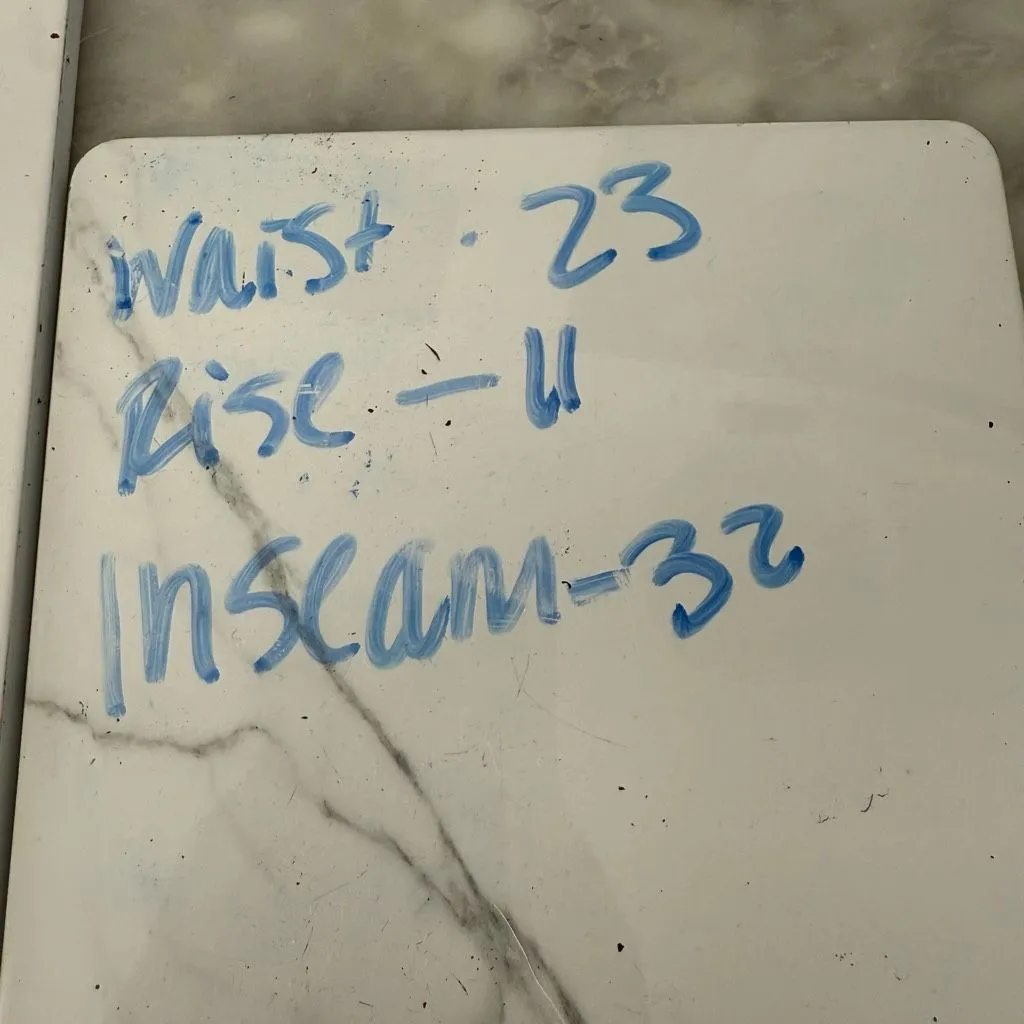 Waist. 23
Rise - 11
Inseam - 32